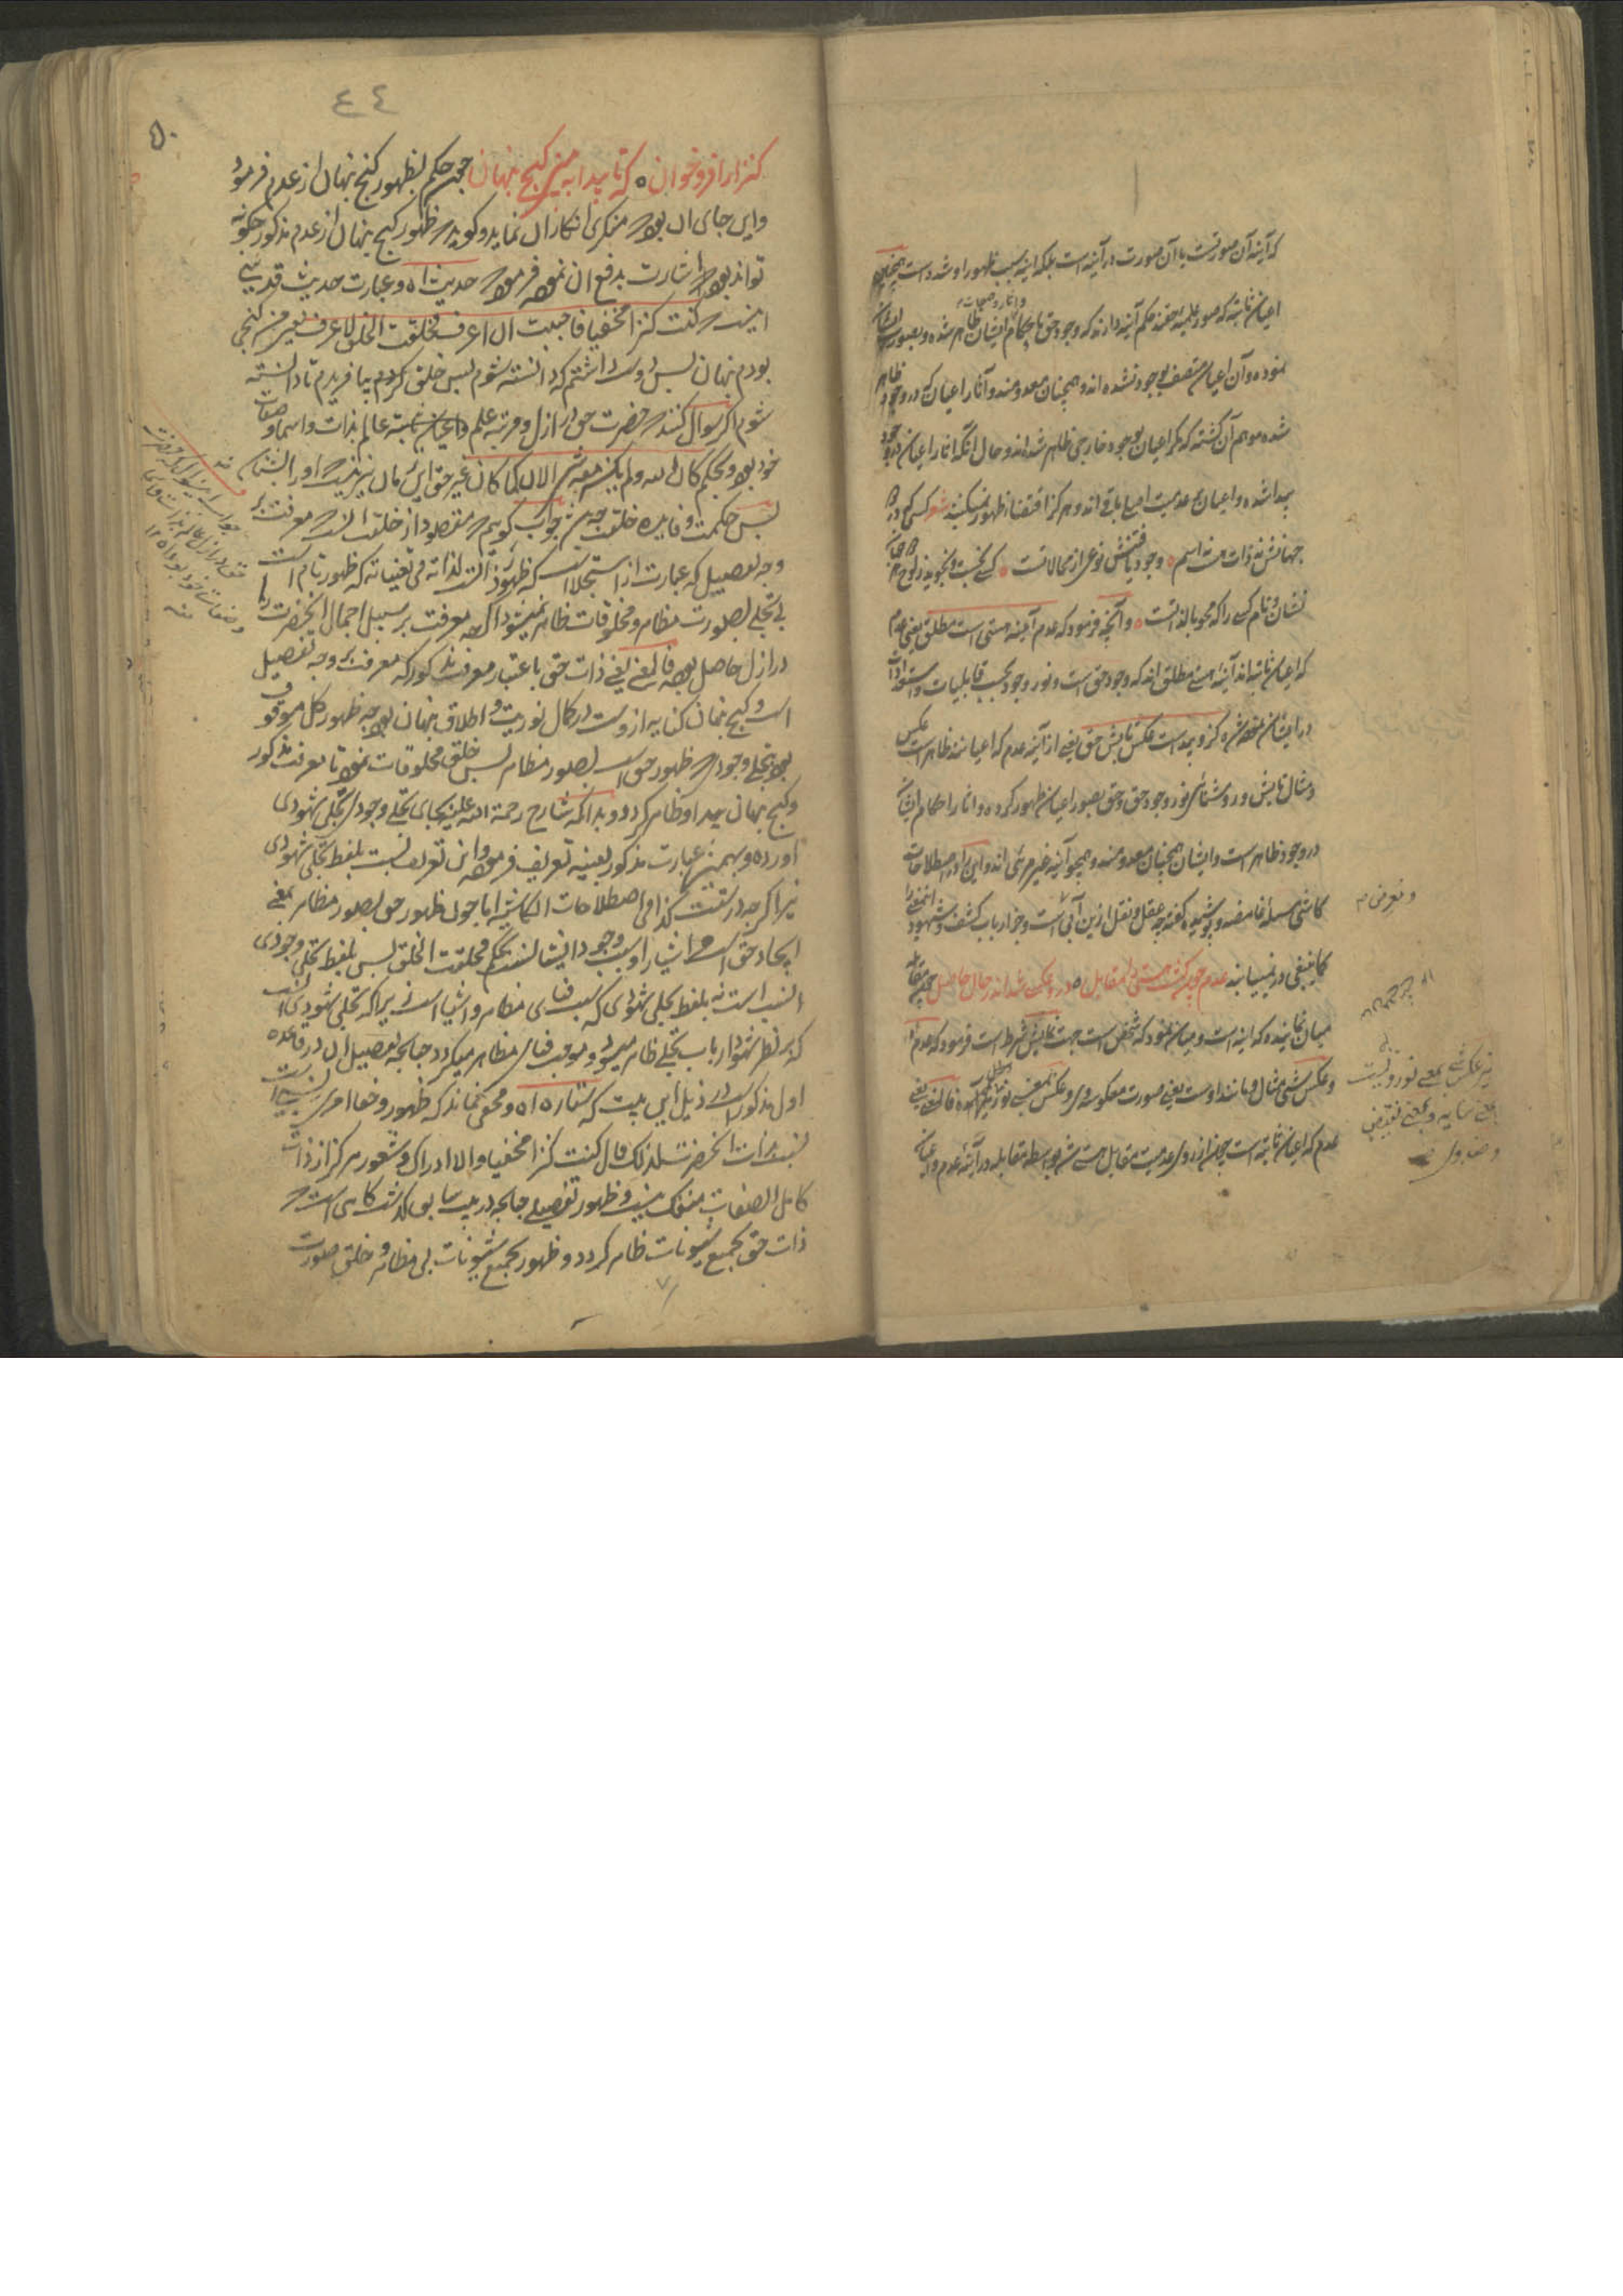 که آینه آن صورتست یا آن صورت در آینه است بلکه آینه سبب ظهور او شده است همچنین
اعیان ثابته که صور علمیه حقند حکم آینه دارند که وجود حق باحکام ایشان ظاهر شده و بصورت ایشان
نموده و آن اعیان متصف بوجود نشده اند و همچنان معدومند و آثار اعیان که در وجود ظاهر
شده موهم آن گشته که مگر اعیان بوجود خارجی ظاهر شده اند و حال آنکه آثار اعیان در وجود
پیدا شده و اعیان بر عدمیت اصلی باقی اند و هرگز اقتضاء ظهور نمیکنند شعر کسی کو در
جهانش نه ذات است نه اسم وجود یافتنش نوعی از محالاتست کسی نجست و نجوید ز لوح
نشان و نام کسی را که محو بالذاتست و آنچه فرمود که عدم آیینه هستی است مطلق یعنی عدم
که اعیان ثابته اند آینه هستی مطلق اند که وجود حق است و نور وجود بحسب قابلیات و استعدادات
در ایشان منعکس شده کزو پیداست عکس تابش حق یعنی از آینه عدم که اعیانند ظاهر است عکس
و مثال تابش و روشنائی نور وجود حق و حق بصور اعیان ظهور کرده و آثار احکام ایشان
در وجود ظاهر است و ایشان همچنان معدومند و همچو آینه غیر مرئی اند و این را در اصطلاحات
کاشی مسئله غامضه و پوشیده گفته چه عقل و نقل ازین آبی است و جز ارباب کشف و شهود این معنی را
کما ینبغی در نیابند عدم چون گشت هستی را مقابل درو عکسی شد اندر حال حاصل چون مقابله
میان نماینده که آینه است و میان نمود که شخص است جهت نمایش شرط است فرمود که عدم اه
و عکس شئ مثال و مانند اوست یعنی صورت معکوسه وی و عکس بمعنی نور نیز آمده فالمعنی یعنی
عدم که اعیان ثابته است چون از روی عدمیت مقابل هستی شد بواسطه مقابله در آینه عدم و اعیان
و نیز عکس شئ بمعنی نور
بمعنی سایه و بمعنی نقیض
٤٤
۵۰
کنزا را فرو خوان که تا پیدا به بینی گنج پنهان چون حکم بظهور گنج پنهان از عدم فرمود
و این جای آن بود که منکری انکار آن نماید و گوید که ظهور گنج پنهان از عدم مذکور چگونه
تواند بود اشارت بدفع آن نموده فرمود که حدیث اه و عبارت حدیث قدسی
اینست که کنت کنزا مخفیا فاحببت ان اعرف فخلقت الخلق لاعرف یعنی من گنجی
بودم پنهان پس دوست داشتم که دانسته شوم پس خلق کردم بیافریدم تا دانسته
شوم اگر سوال کنند که حضرت حق در ازل و مرتبه علم و اعیان ثابته عالم بذات و اسما و صفات
خود بود و بحکم کان الله و لم یکن معه شئ الان کما کان غیر حق این زمان نیز نیست که او را بشناسد
پس حکمت و فایده خلقت چیست جواب گوییم که مقصود از خلقت آنست که معرفت بر
وجه تفصیل که عبارت از استجلاست که ظهور ذاتست لذاته فی تعیناته که ظهور تام است
بی تجلی بصورت مظاهر و مخلوقات ظاهر نمیشود اگرچه معرفت بر سبیل اجمال آنحضرت را
در ازل حاصل بود فالمعنی یعنی ذات حق باعتبار معرفت مذکور که معرفت بر وجه تفصیل
است و گنج پنهان کنایه ازوست در کمال نوریت و اطلاق پنهان بود چه ظهور کل موقوف
بود بتجلی وجودی که ظهور حق است بصور مظاهر پس خلق مخلوقات نمود تا معرفت مذکور
و گنج پنهان پیدا و ظاهر گردد و بدانکه شارح رحمة الله علیه بجای تجلی وجودی تجلی شهودی
آورده و بهمین عبارت مذکور بعینه تعریف فرموده و این تعریف نسبت بلفظ تجلی شهودی
نیز اگرچه درستست کذا فی اصطلاحات الکاشیه اما چون ظهور حق بصور مظاهر بمعنی
ایجاد حق است اشیا را و سبب وجود ایشانست بحکم فخلقت الخلق پس بلفظ تجلی وجودی
انسب است نه بلفظ تجلی شهودی که سبب فنای مظاهر و اشیا است زیرا که تجلی شهودی آنست
که بر نظر شهود ارباب تجلی ظاهر میشود و موجب فنای مظاهر میگردد چنانچه تفصیل آن در قاعده
اول مذکور است در ذیل این بیت که ستاره اه و مخفی نماند که ظهور و خفا امری نسبی است
نسبت بذات آنحضرت لذلک قال کنت کنزا مخفیا والا ادراک و شعور هرگز از ذات
کامل الصفات منفک نیست و ظهور تفصیلی چنانچه در بیت سابق گذشت گاهی است که
ذات حق بجمیع شیونات ظاهر گردد و ظهور بجمیع شیونات بی مظاهر و خلق صورت
جواب این سوال که حضرت
حق در ازل عالم بذات
و صفات خود بود
منه